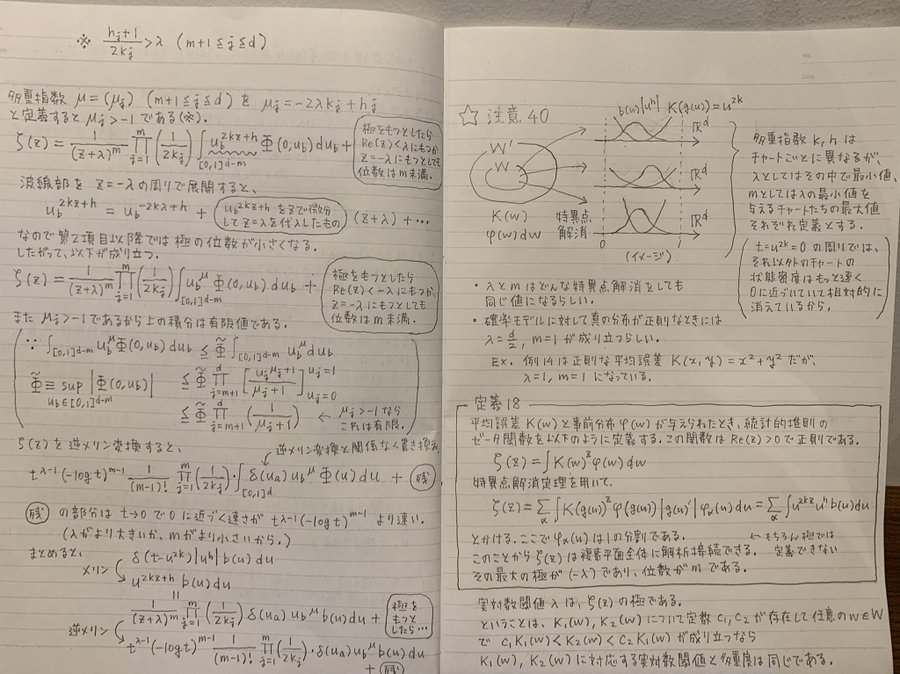 ※ (h_j+1)/(2k_j) > λ (m+1≦j≦d)
多重指数 μ=(μ_j) (m+1≦j≦d) を μ_j=-2λk_j+h_j
と定義すると μ_j>-1 である(※)。
ζ(z) = 1/(z+λ)^m ∏_{j=1}^{m} (1/2k_j) ∫_{[0,1]^{d-m}} u_b^{2kz+h} Φ(0,u_b) du_b +
極をもつとしたら
Re(z)<-λにもつか、
z=-λにもつとしても
位数はm未満。
波線部を z=-λの周りで展開すると、
u_b^{2kz+h} = u_b^{-2λk+h} + (z+λ)+⋯
u_b^{2kz+h}をzで微分
してz=λを代入したもの
なので第2項目以降では極の位数が小さくなる。
したがって、以下が成り立つ。
ζ(z) = 1/(z+λ)^m ∏_{j=1}^{m} (1/2k_j) ∫_{[0,1]^{d-m}} u_b^μ Φ(0,u_b) du_b +
極をもつとしたら
Re(z)<-λにもつか、
z=-λにもつとしても
位数はm未満。
また μ_j>-1であるから上の積分は有限値である。
∵ ∫_{[0,1]^{d-m}} u_b^μ Φ(0,u_b) du_b ≦ Φ̃ ∫_{[0,1]^{d-m}} u_b^μ du_b
Φ̃ ≡ sup_{u_b∈[0,1]^{d-m}} |Φ(0,u_b)| ≦ Φ̃ ∏_{j=m+1}^{d} [u_j^{μ_j+1}/(μ_j+1)]_{u_j=0}^{u_j=1}
≦ Φ̃ ∏_{j=m+1}^{d} (1/(μ_j+1)) ← μ_j>-1なら
これは有限。
ζ(z)を逆メリン変換すると、
逆メリン変換と関係なく置き換え
t^{λ-1}(-log t)^{m-1} 1/(m-1)! ∏_{j=1}^{m} (1/2k_j)・∫_{[0,1]^d} δ(u_a) u_b^μ Φ(u) du + 残。
残 の部分は t→0 で0に近づく速さが t^{λ-1}(-log t)^{m-1} より速い。
(λがより大きいか、mがより小さいから。)
まとめると、 δ(t-u^{2k})|u^h|b(u)du
メリン
u^{2kz+h} b(u)du
=
1/(z+λ)^m ∏_{j=1}^{m} (1/2k_j) δ(u_a) u_b^μ b(u)du +
極を
もつと
したら…
逆メリン
t^{λ-1}(-log t)^{m-1} 1/(m-1)! ∏_{j=1}^{m} (1/2k_j)・δ(u_a) u_b^μ b(u)du
+ 残
No.
Date
☆ 注意 40
b(u)|u^h| K(g(u))=u^{2k}
W'
W
ℝ^d
ℝ^d
ℝ^d
K(w)
φ(w)dw
特異点
解消
0
1
(イメージ)
多重指数 k, h は
チャートごとに異なるが、
λとしてはその中で最小値、
mとしてはλの最小値を
与えるチャートたちの最大値
それぞれ定義とする。
t=u^{2k}=0 の周りでは、
それ以外のチャートの
状態密度はもっと速く
0に近づいていて相対的に
消えているから。
・λとmはどんな特異点解消をしても
同じ値になるらしい。
・確率モデルに対して真の分布が正則なときには
λ=d/2, m=1 が成り立つらしい。
Ex. 例14は正則な平均誤差 K(x,y)=x²+y² だが、
λ=1, m=1 になっている。
定義18
平均誤差 K(w) と事前分布 φ(w) が与えられたとき、統計的推測の
ゼータ関数を以下のように定義する。この関数は Re(z)>0 で正則である。
ζ(z) = ∫K(w)^z φ(w) dw
特異点解消定理を用いて、
ζ(z) = Σ_α ∫K(g(u))^z φ(g(u))|g(u)'| φ_α(u) du = Σ_α ∫u^{2kz} u^h b(u)du
とかける。ここで φ_α(u) は1の分割である。
←もちろん極では
定義できない
このことから ζ(z) は複素平面全体に解析接続できる。
その最大の極が(-λ)であり、位数がmである。
実対数閾値λは、ζ(z)の極である。
ということは、K₁(w), K₂(w) について定数 c₁, c₂ が存在して任意のw∈W
で c₁K₁(w)<K₂(w)<c₂K₁(w) が成り立つなら
K₁(w), K₂(w) に対応する実対数閾値と多重度は同じである。